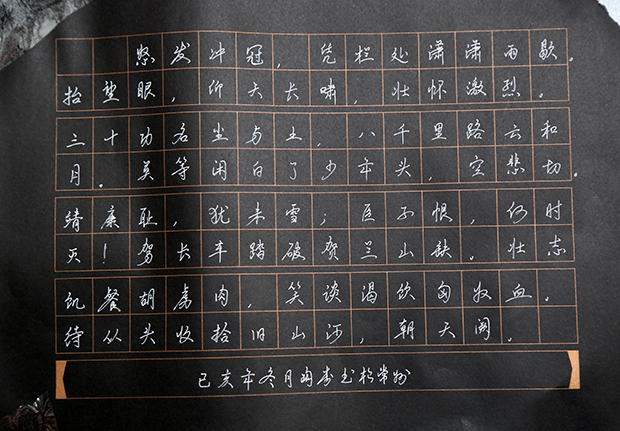 怒发冲冠，凭栏处潇潇雨歇。
抬望眼，仰天长啸，壮怀激烈。
三十功名尘与土，八千里路云和
月。莫等闲白了少年头，空悲切。
靖康耻，犹未雪；臣子恨，何时
灭！驾长车踏破贺兰山缺。壮志
饥餐胡虏肉，笑谈渴饮匈奴血。
待从头收拾旧山河，朝天阙。
己亥年冬月书於常州